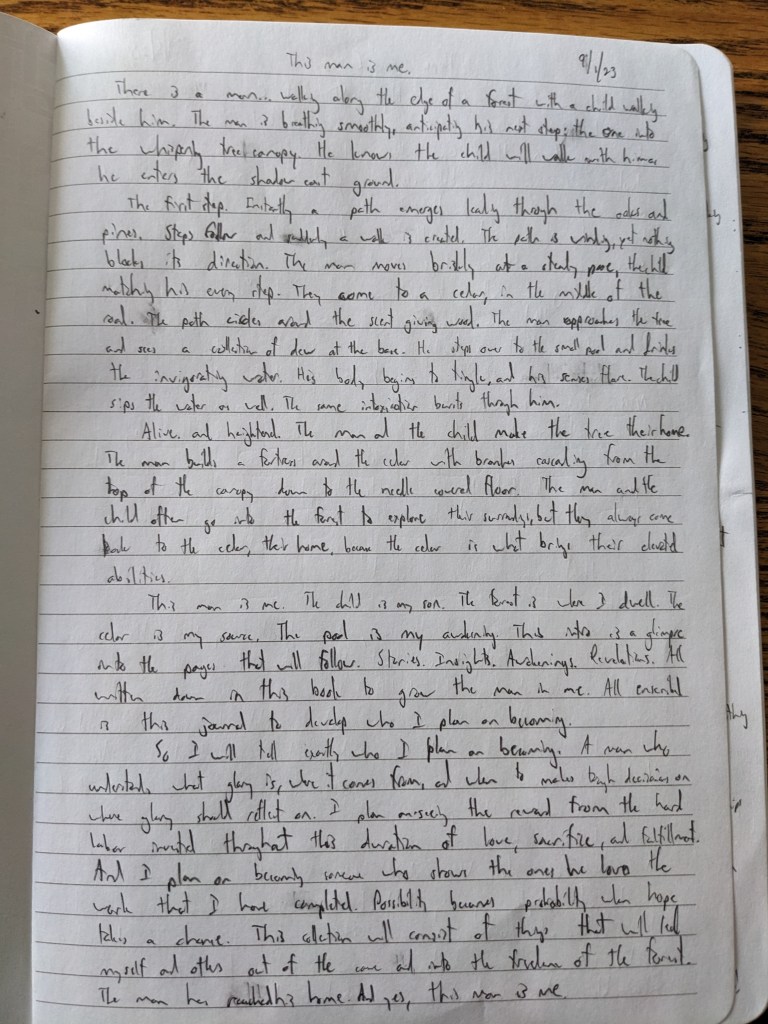 This man is me. 9/1/23
There is a man... walking along the edge of a forest with a child walking
beside him. The man is breathing smoothly, anticipating his next step; the one into
the whispering tree canopy. He knows the child will walk with him as
he enters the shadow cast ground.
The first step. Initially a path emerges leading through the oaks and
pines. Steps follow and suddenly a walk is created. The path is winding, yet nothing
blocks its direction. The man moves briskly at a steady pace, the child
matching his every step. They come to a cedar, in the middle of the
road. The path circles around the scent giving wood. The man approaches the tree
and sees a collection of dew at the base. He steps over to the small pool and drinks
the invigorating water. His body begins to tingle, and his senses flare. The child
sips the water as well. The same intoxication bursts through him.
Alive and heightened. The man and the child make the tree their home.
The man builds a fortress around the cedar with branches cascading from the
top of the canopy down to the needle covered floor. The man and the
child often go into the forest to explore their surroundings, but they always come
back to the cedar, their home, because the cedar is what brings their elevated
abilities.
This man is me. The child is my son. The forest is where I dwell. The
cedar is my source. The pool is my awakening. This intro is a glimpse
into the pages that will follow. Stories. Insights. Awakenings. Revelations. All
written down in this book to grow the man in me. All
is this journal to develop who I plan on becoming.
So I will tell exactly who I plan on becoming. A man who
understands what glory is, where it comes from, and when to make tough decisions on
where glory should reflect on. I plan on seeing the reward from the hard
labor invested throughout this duration of love, sacrifice, and fulfillment.
And I plan on becoming someone who shows the ones he loves the
work that I have completed. Possibility becomes probability when hope
takes a chance. This collection will consist of things that will lead
myself and others out of the cave and into the freedom of the forest.
The man has reached his home. And yes, this man is me.